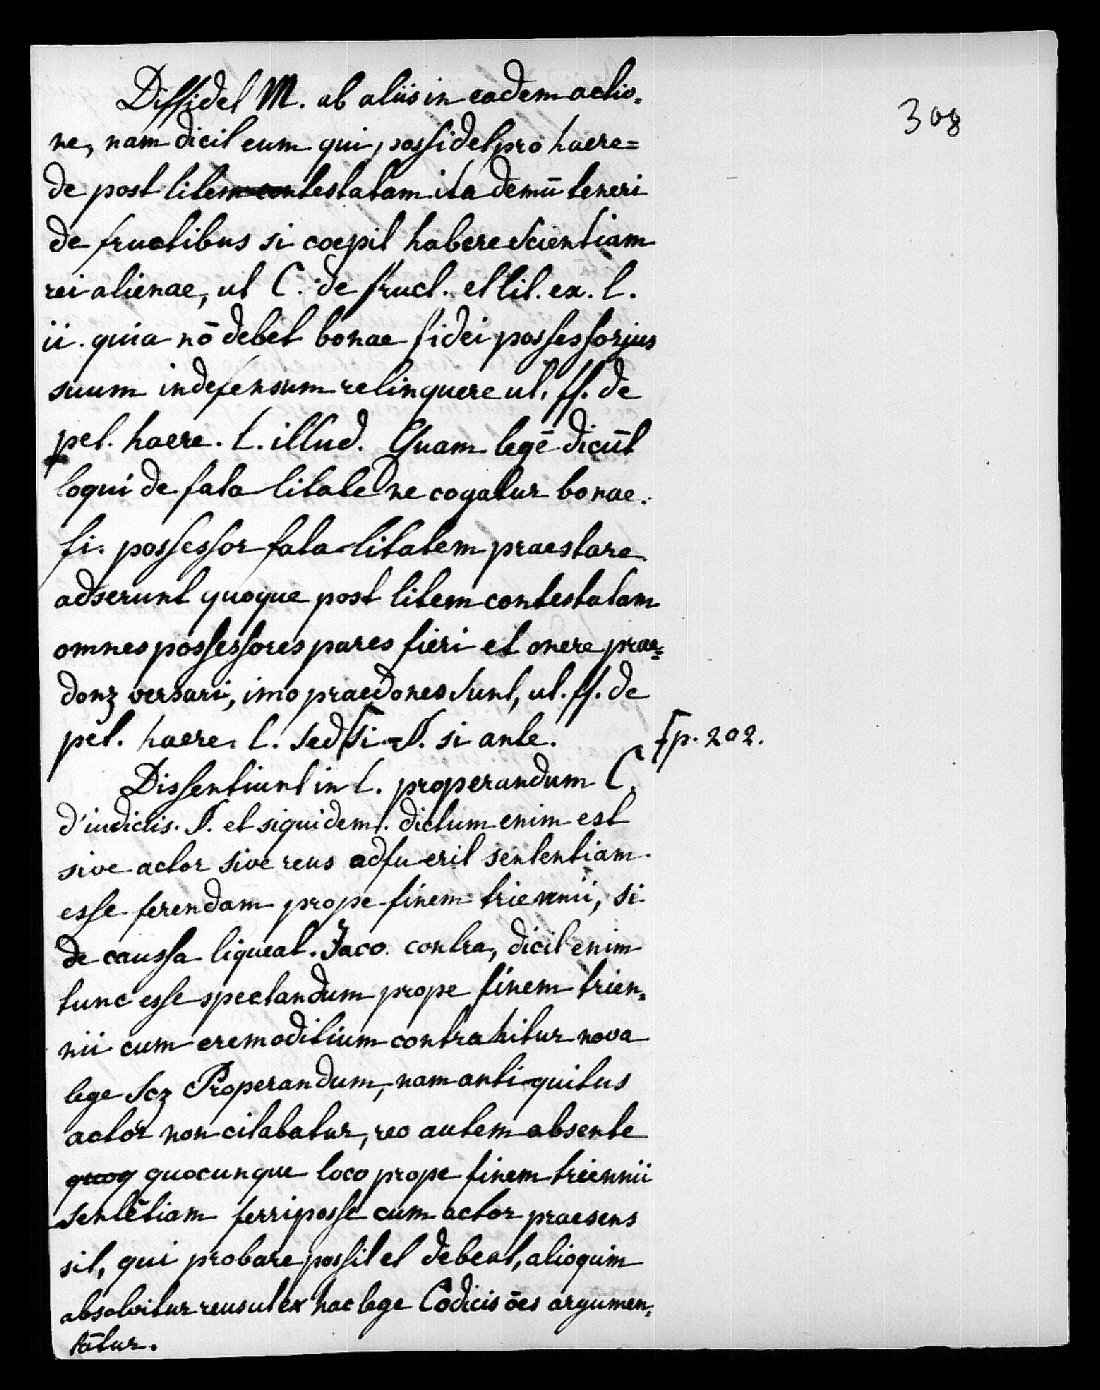 308
Dissidet M. ab aliis in eadem actio-
ne, nam dicit eum qui possidet pro haere=
de post litem contestatam ita demū teneri
de fructibus si coepit habere scientiam
rei alienae, ut C. de fruct. et lit. ex. l.
ii. quia nō debet bonae fidei possessor jus
suum indefensum relinquere ut. ff. de
pet. haere. l. illud. Quam legē dicūt
loqui de fatalitate ne cogatur bonae.
fi. possessor fatalitatem praestare
adserunt quoque post litem contestatam
omnes possessores pares fieri et onere prae=
donʒ versari, imo praedones sunt, ut. ff. de
pet. haere. l. sed [si. §. si ante.
[p. 202.
Dissentiunt in l. properandum C.
d' iudiciis. §. et siquidem. dictum enim est
sive actor sive reus adfuerit sententiam
esse ferendam prope finem triennii, si
de caussa liqueat. Jaco. contra, dicit enim
tunc esse spectandum prope finem trien-
nii cum eremoditium contrahitur nova
lege scʒ Properandum, nam antiquitus
actor non citabatur, reo autem absente
quoq quocunque loco prope finem triennii
sentētiam ferri posse cum actor praesens
sit, qui probare possit et debeat, alioquim
absolvitur reus ut ex hac lege Codicis ōes argumen-
tātur.